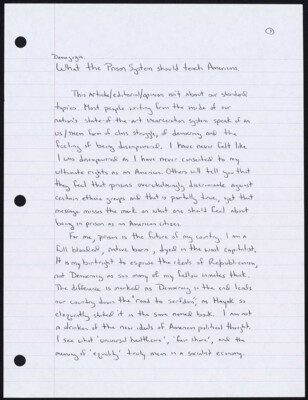 1
Demagogue
What the Prison System should teach Americans.
This Article/editorial/opinion isn't about our standard
topics. Most people writing from the inside of our
nation's state-of-the art incarceration system speak of an
us/them form of class struggle, of democracy and the
feeling of being disempowered. I have never felt like
I was disempowered as I have never consented to my
ultimate rights as an American. Others will tell you that
they feel that prisons overwhelmingly discriminate against
certain ethnic groups and that is partially true, yet that
message misses the mark on what one should feel about
being in prison as an American citizen.
For me, prison is the future of my country. I am a
full blooded, native born, dyed in the wool capitalist,
It is my birthright to espouse the ideals of Republicanism,
not Democracy as so many of my fellow inmates think.
The difference is marked as "Democracy in the end leads
our country down the "road to serfdom", as Hayek so
eloquently stated it in the same named book. I am not
a drinker of the new ideals of American political thought.
I see what 'universal healthcare', 'fair share', and the
meaning of 'equality' truly mean in a socialist economy.